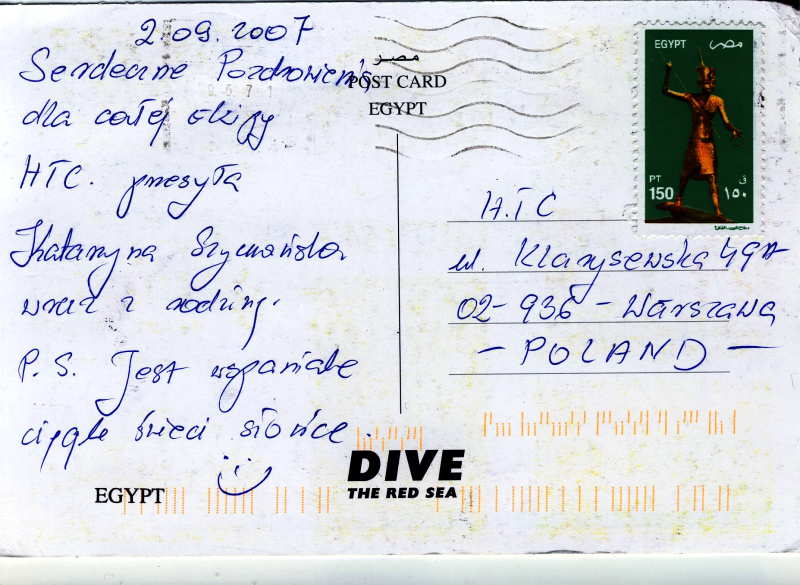 2 09. 2007
Serdeczne Pozdrowienia
dla całej ekipy
HTC. przesyła
Katarzyna Szymańska
wraz z rodziną.
P.S. Jest wspaniale
ciągle świeci słońce.
مصر
POST CARD
EGYPT
EGYPT مصر
PT
150 ١٥٠
H.T.C
ul. Klarysewska 49A
02-936 - Warszawa
- POLAND -
DIVE
THE RED SEA
EGYPT